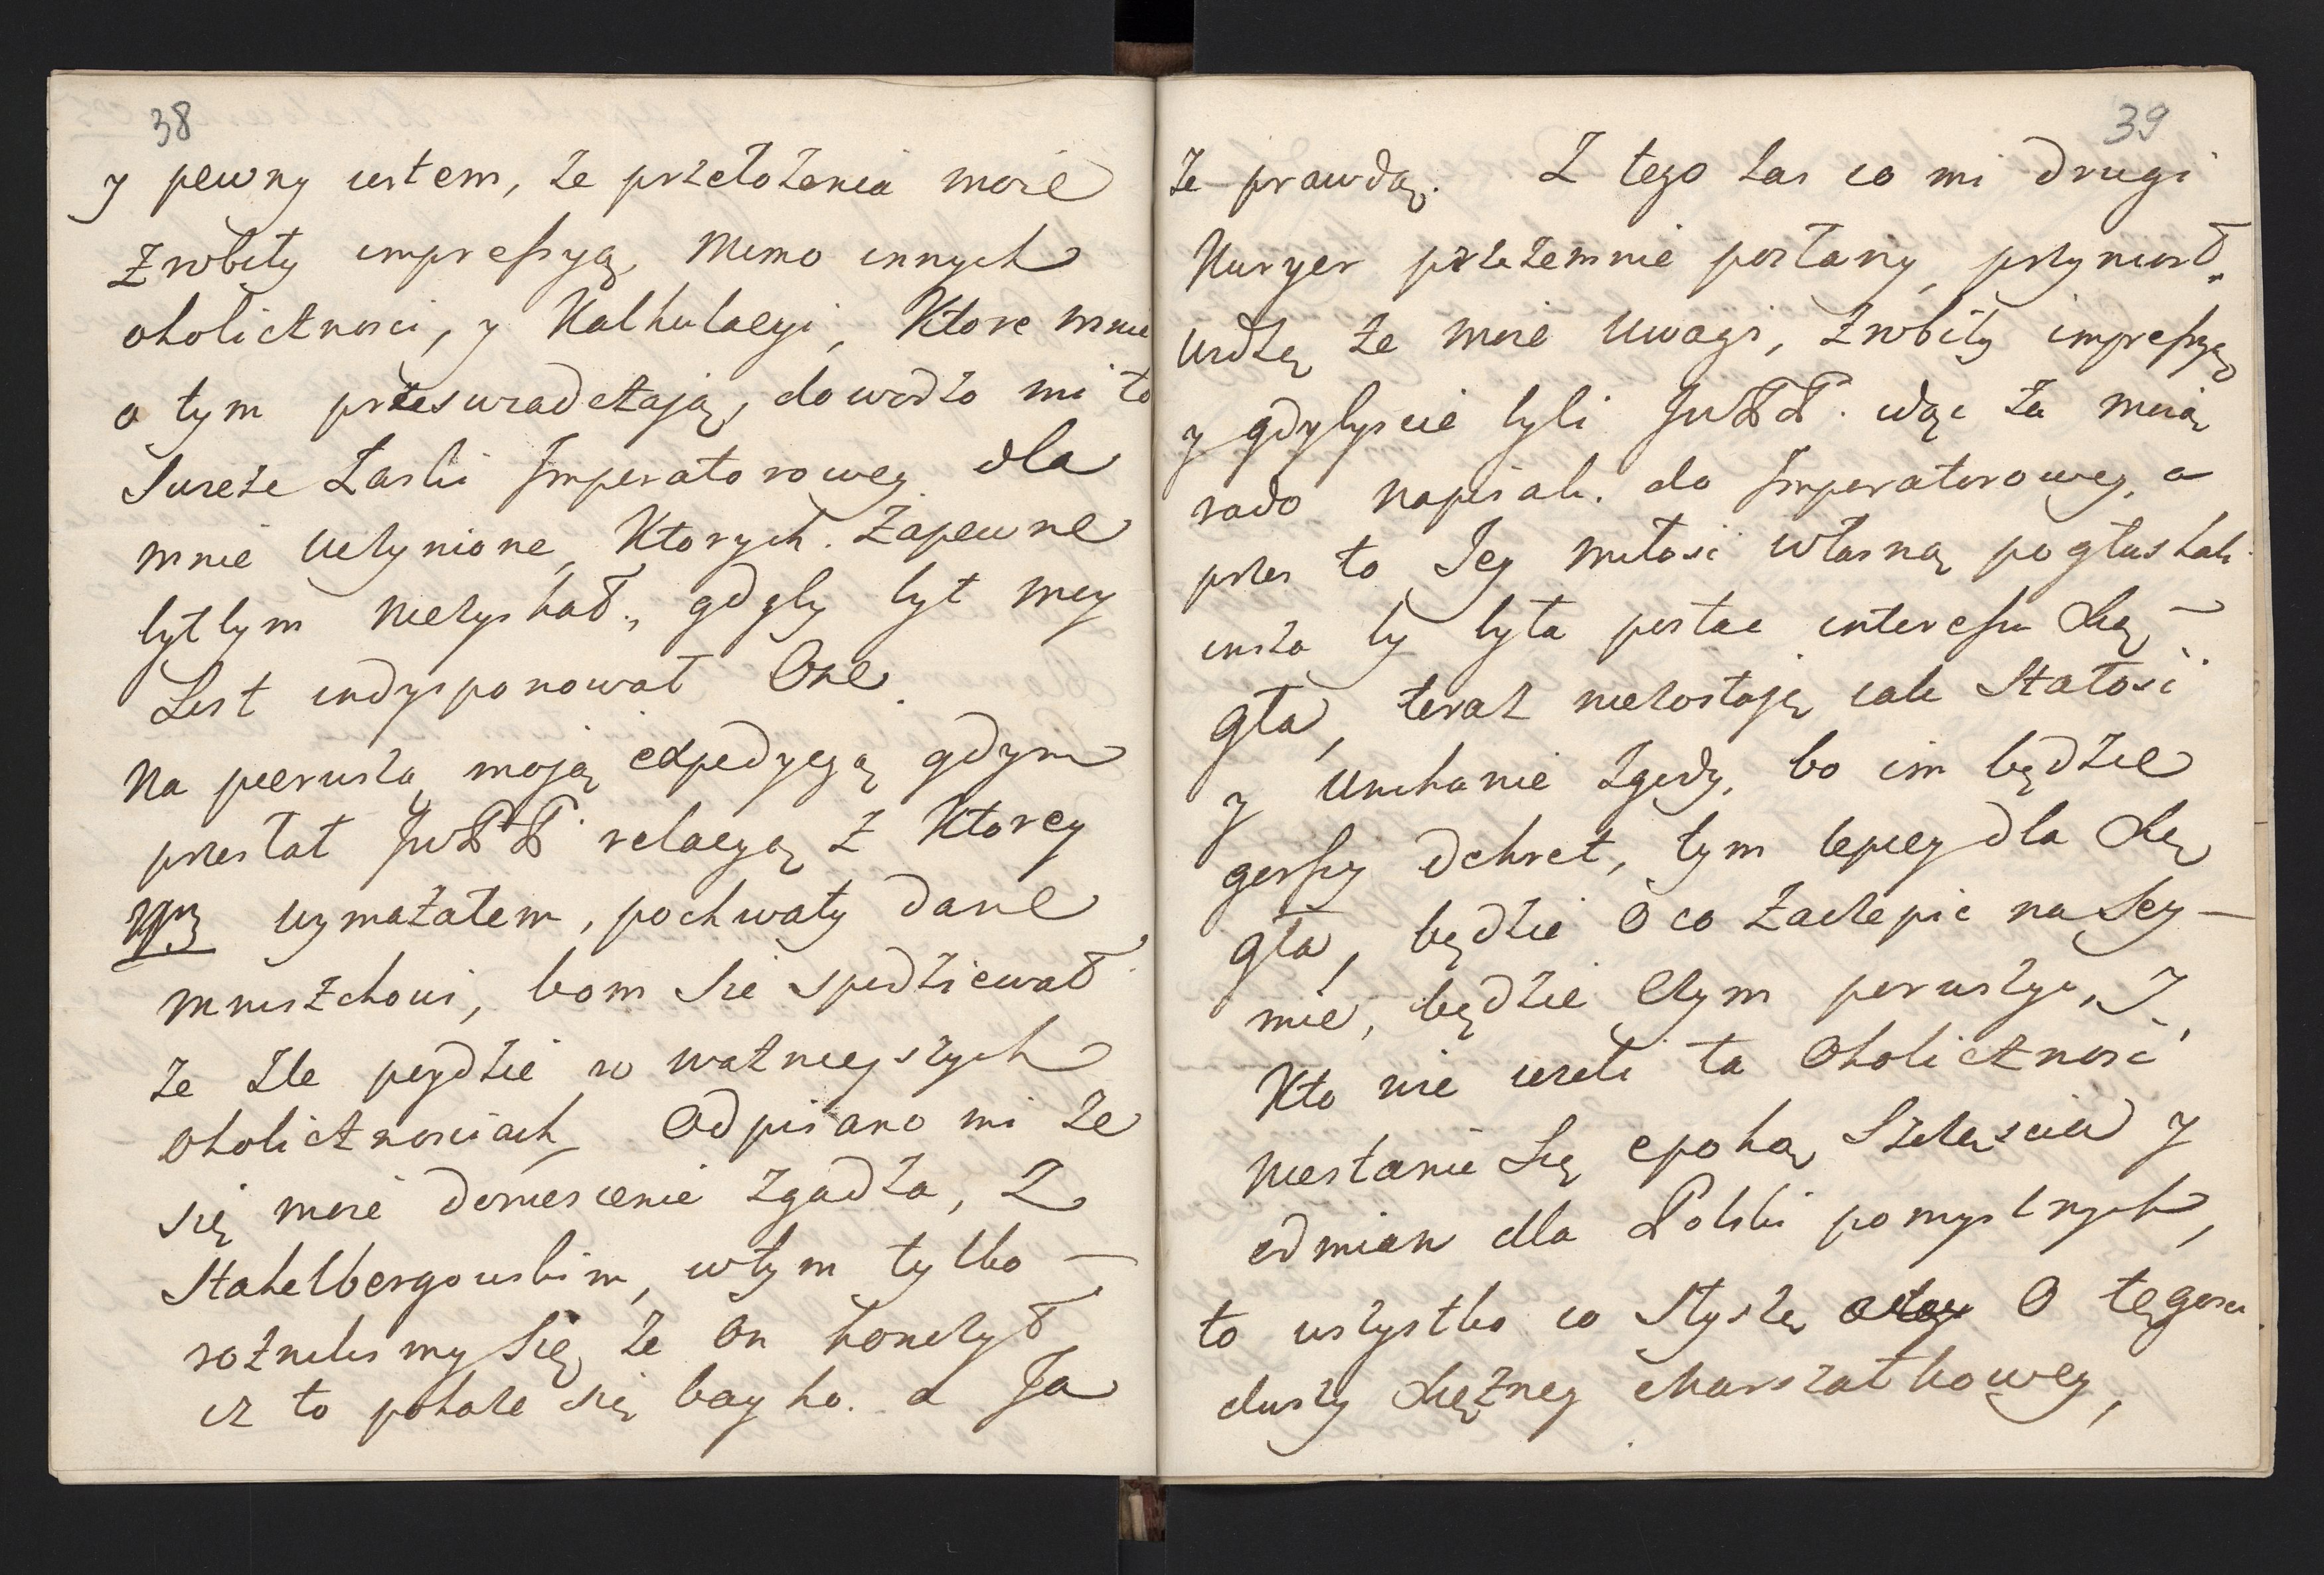 38
y pewny iestem, że przełożenia moie
zrobiły impressyą, mimo innych
okolicznosci, y Kalkulacyi, Ktore mnie
o tym przeswiadczają, dowodzą mi to
swieże Łaski Imperatorowey dla
mnie uczynione, Ktorych zapewne
bytbym niezyskał, gdyby był moy
List indysponował One
Na pierwszą moją expedycyą gdym
przesłał JWPP relacyą z Ktorey
wymazałem, pochwały dane
Mniszchowi, bom sie spodziewał
że źle poydzie w ważnieyszych
okolicznosciach, Odpisano mi że
się moie doniesienie zgadza, z
Stakelbergowskim, wtym tylko
roznilismy się, że on konczył
iż to pokaże się bayką. a Ja
39
że prawdą. Z tego zas co mi drugi
Kuryer przezemnie posłany, przyniosł,
widzę że moie uwagi, zrobiły impressyą
y gdybyscie byli JWPP. idąc za moią
radą napisali do Imperatorowey, a
przez to Jey miłosć własną pogłaskali
insza by była postac interessu Xię¬
cia, teraz niezostaje iak stałosć
y unikanie zgody, bo im będzie
gorszy dekret, tym lepiey dla Xię
cia, będzie o co zaczepić na Sey¬
mie, będzie czym poruszyć, J
Kto wie iezeli ta okolicznosć
niestanie się epoką szczęscia y
odmian dla Polski pomyslnych,
to wszystko co słyszę o tęgosci
duszy Xiężney Marszałkowey,